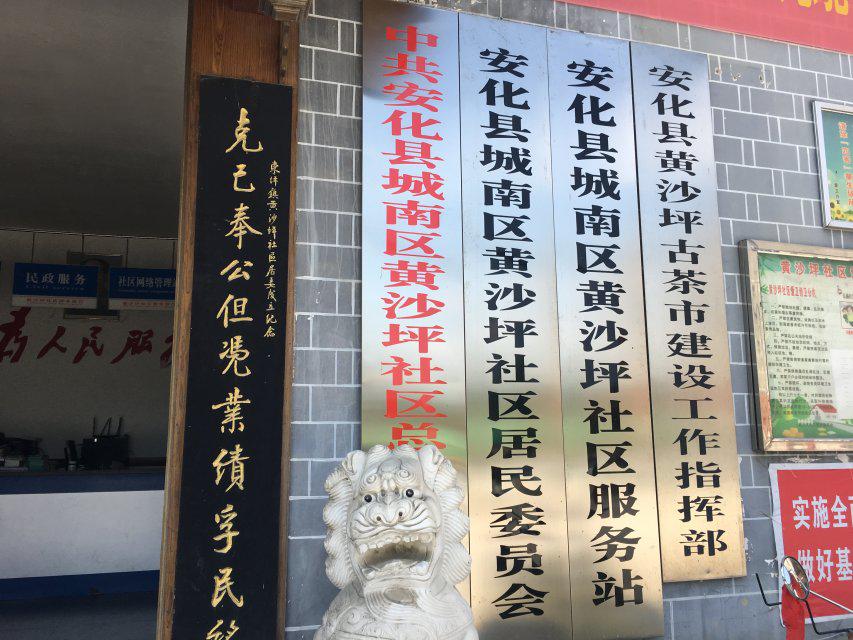 克己奉公但凭業績孚民
东坪镇黄沙坪社区居委成立纪念
中共安化县城南区黄沙坪社区总
安化县城南区黄沙坪社区居民委员会
安化县城南区黄沙坪社区服务站
安化县黄沙坪古茶市建设工作指挥部
民政服务
社区网络管理
为人民服
黄沙坪社区
实施全
做好基